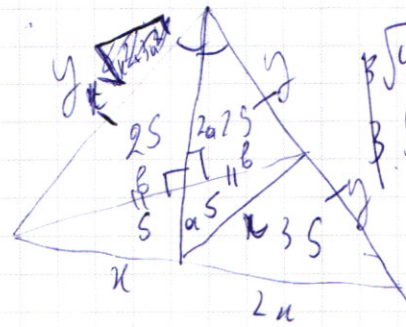 y
y
2S
2a
2S
b
b
S
a
S
3S
y
x
2x